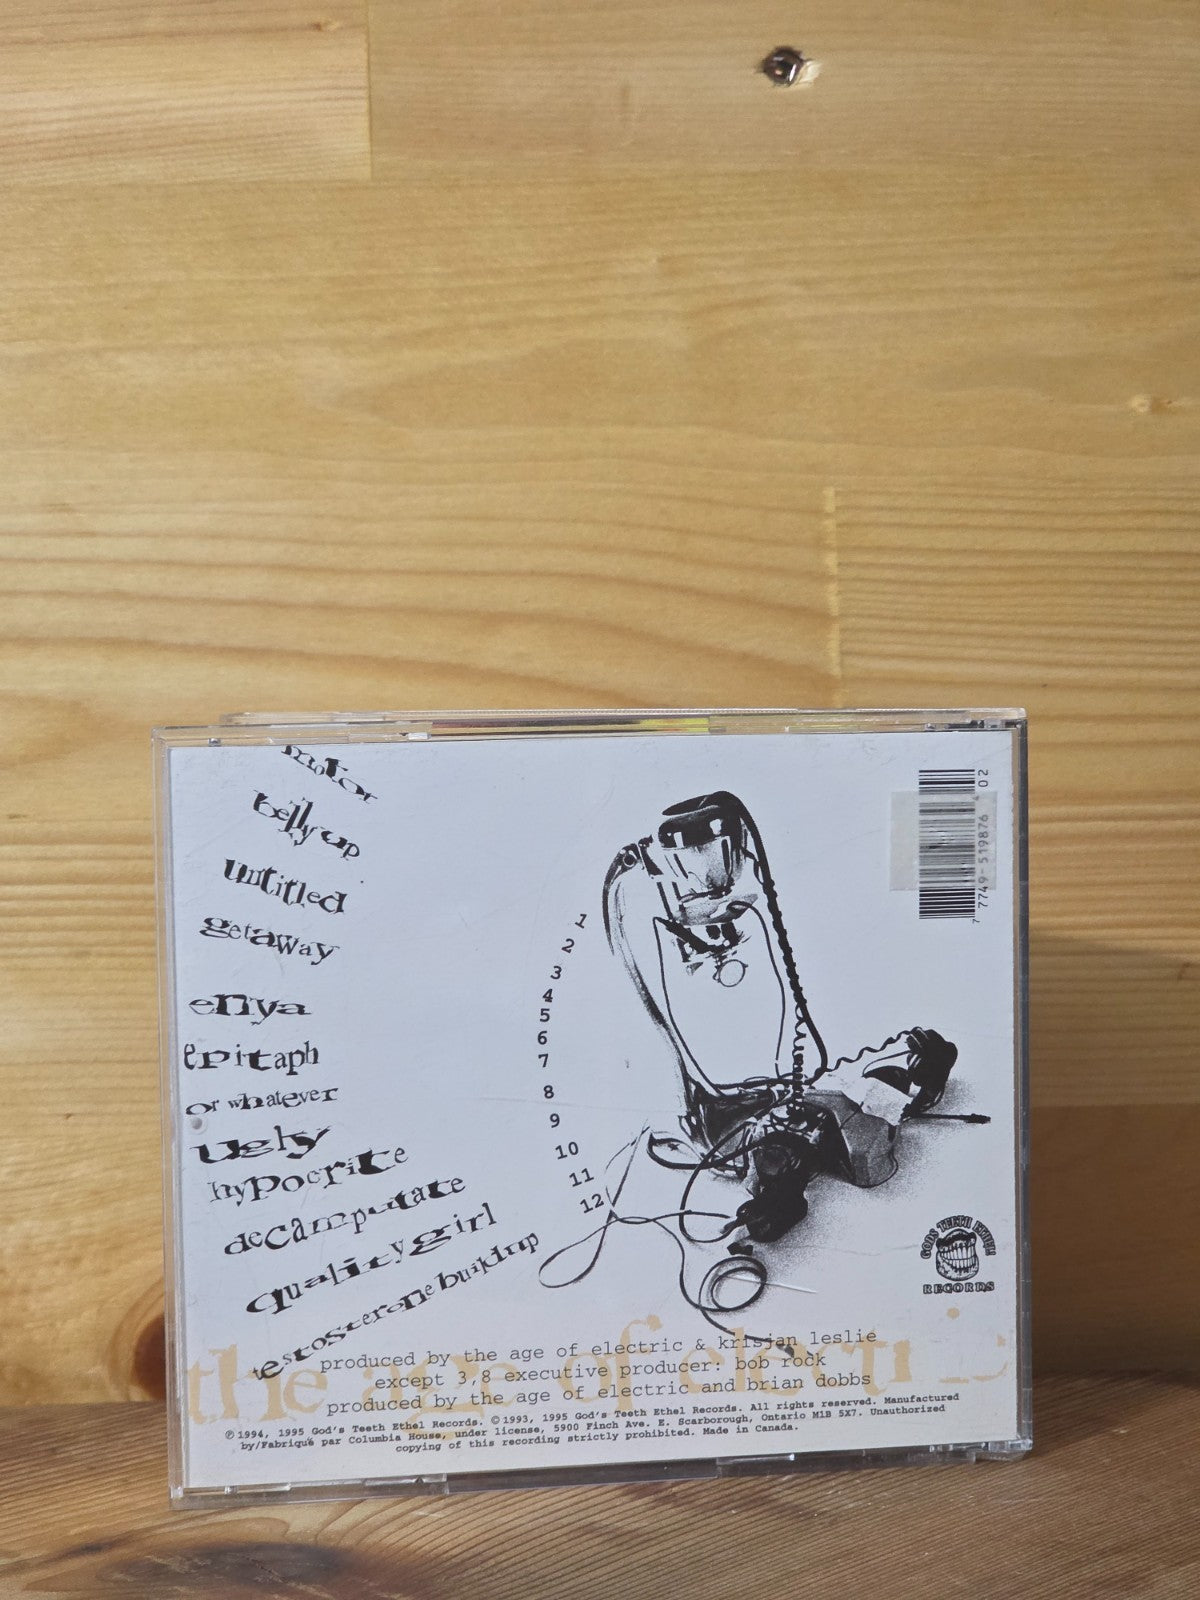 motor
belly up
untitled
getaway
enya
epitaph
or whatever
ugly
hypocrite
decamputate
quality girl
testosterone buildup
1
2
3
4
5
6
7
8
9
10
11
12
7 7749-519876 4 02
GODS TEETH ETHEL
RECORDS
the age of electric
produced by the age of electric & krisjan leslie
except 3,8 executive producer: bob rock
produced by the age of electric and brian dobbs
℗1994, 1995 God's Teeth Ethel Records. ©1993, 1995 God's Teeth Ethel Records. All rights reserved. Manufactured
by/Fabriqué par Columbia House, under license, 5900 Finch Ave. E. Scarborough, Ontario M1B 5X7. Unauthorized
copying of this recording strictly prohibited. Made in Canada.